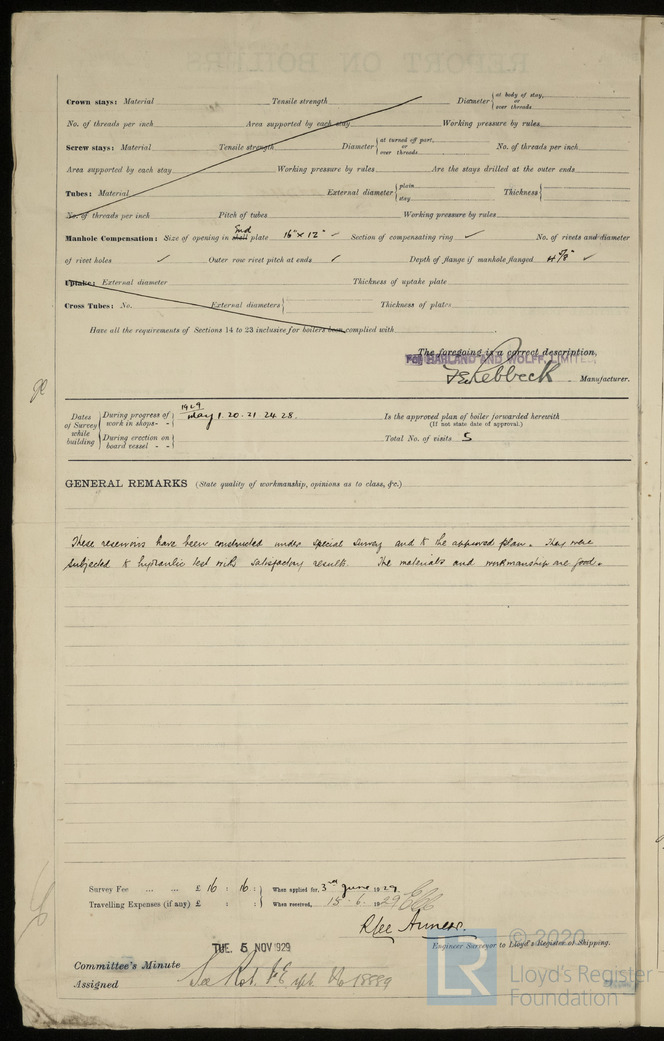 Crown stays: Material Tensile strength Diameter { at body of stay, or over threads
No. of threads per inch Area supported by each stay Working pressure by rules
Screw stays: Material Tensile strength Diameter { at turned off part, or over threads No. of threads per inch
Area supported by each stay Working pressure by rules Are the stays drilled at the outer ends
Tubes: Material External diameter { plain stay Thickness {
No. of threads per inch Pitch of tubes Working pressure by rules
Manhole Compensation: Size of opening in shell End plate 16" x 12" ✓ Section of compensating ring ✓ No. of rivets and diameter
of rivet holes ✓ Outer row rivet pitch at ends ✓ Depth of flange if manhole flanged ✓
Uptake: External diameter Thickness of uptake plate
Cross Tubes: No. External diameters { Thickness of plates
Have all the requirements of Sections 14 to 23 inclusive for boilers been complied with
The foregoing is a correct description,
For HARLAND AND WOLFF, LIMITED,
F E Rebbeck Manufacturer.
Dates of Survey while building { During progress of work in shops - - } 1929 May 1. 20. 21 24 28. Is the approved plan of boiler forwarded herewith
(If not state date of approval.)
{ During erection on board vessel - - } Total No. of visits 5
GENERAL REMARKS (State quality of workmanship, opinions as to class, &c.)
These reservoirs have been constructed under special survey and to the approved plan. They were
subjected to hydraulic test with satisfactory results. The materials and workmanship are good.
Survey Fee ... ... £ 16 : 16 : } When applied for, 3rd June 1929.
Travelling Expenses (if any) £ : : } When received, 15. 6. 1929
Engineer Surveyor to Lloyd's Register of Shipping.
TUE. 5 NOV 1929
Committee's Minute
Assigned See
© 2020
Lloyd's Register
Foundation
LR